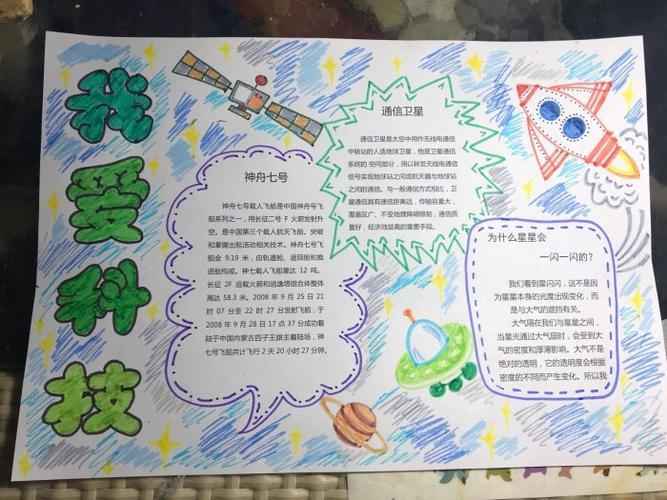 我
爱
科
技
神舟七号
神舟七号载人飞船是中国神舟号飞
船系列之一，用长征二号 F 火箭发射升
空。是中国第三个载人航天飞船。突破
和掌握出舱活动相关技术。神舟七号飞
船全 9.19 米，由轨道舱、返回舱和推
进舱构成。神七载人飞船重达 12 吨。
长征 2F 运载火箭和逃逸塔组合体整体
高达 58.3 米。2008 年 9 月 25 日 21
时 07 分至 22 时 27 分发射飞船，于
2008 年 9 月 28 日 17 点 37 分成功着
陆于中国内蒙古四子王旗主着陆场，神
七号飞船共计飞行 2 天 20 小时 27 分钟。
通信卫星
通信卫星是太空中用作无线电通信
中转站的人造地球卫星，他是卫星通信
系统的空间部分，用以转发无线电通信
信号实现地球站之间或航天器与地球站
之间的通信。与一般通信方式相比，卫
星通信具有通信距离远，传输容量大，
覆盖区广、不受地理障碍限制，通信质
量好，经济效益高的重要手段。
为什么星星会
一闪一闪的？
我们看到星闪闪，这不是因
为星星本身的光度出现变化，而
是与大气的遮挡有关。
大气隔在我们与星星之间，
当星光通过大气层时，会受到大
气的密度和厚薄影响。大气不是
绝对的透明，它的透明度会根据
密度的不同而产生变化。所以我